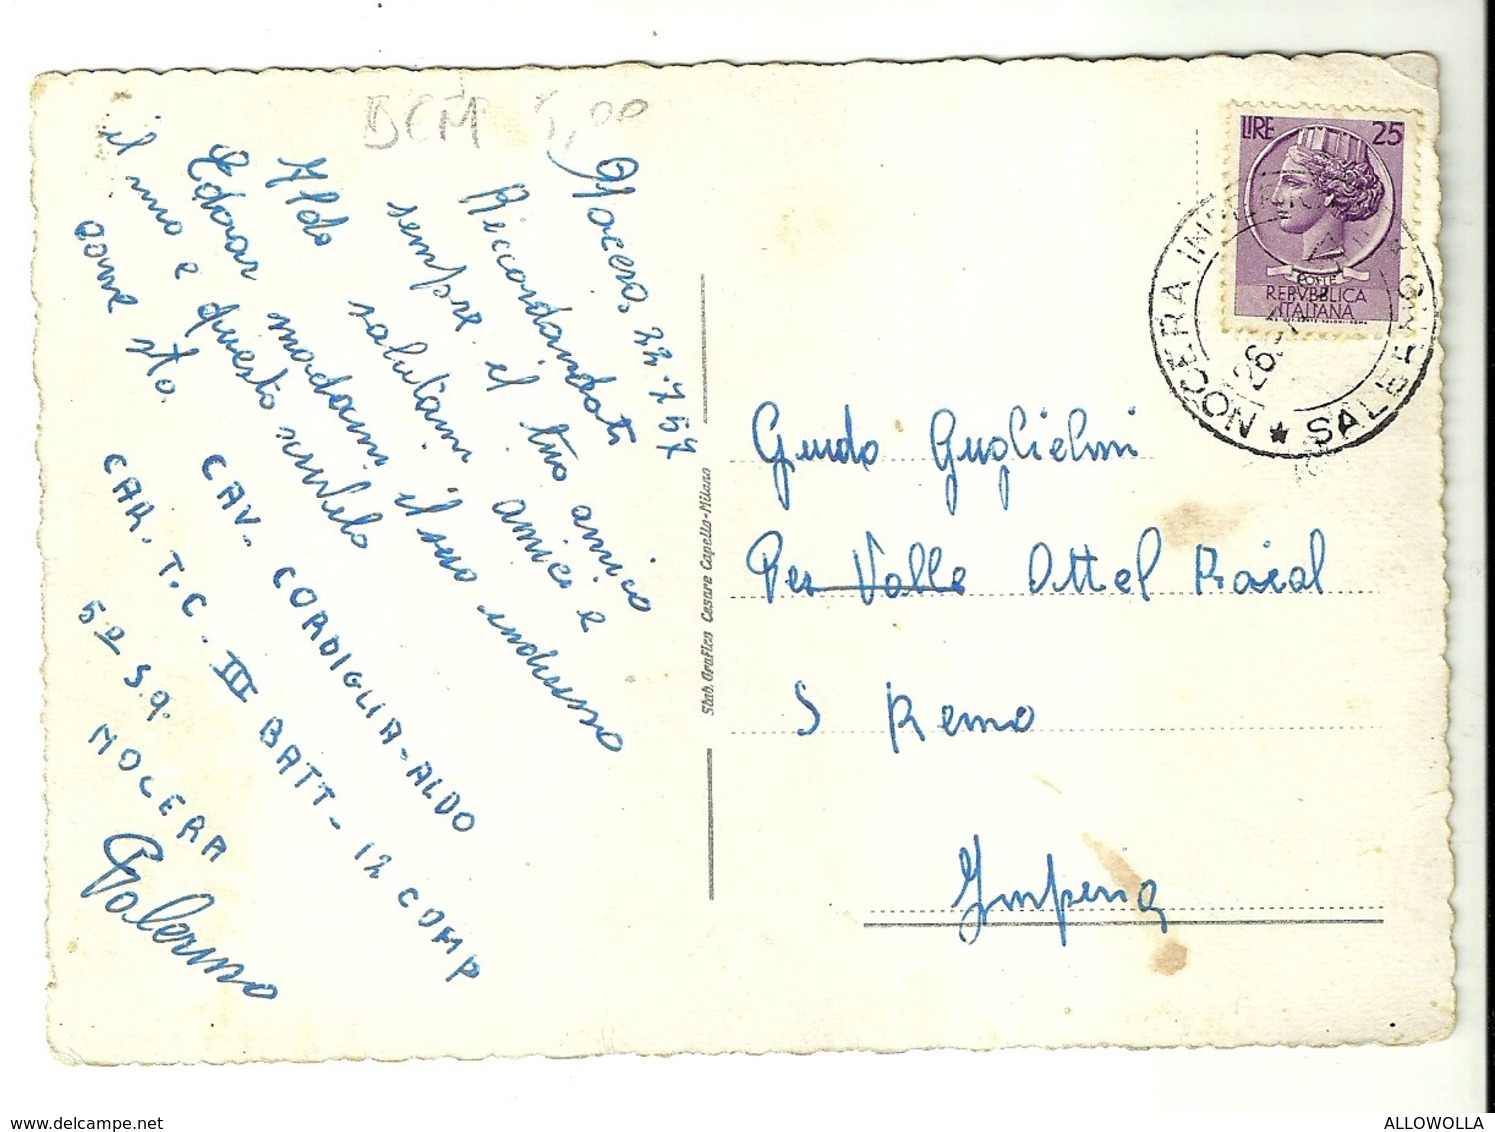 BCM 1,00
Nocera, 22-7 57
Riccordandoti
sempre il tuo amico
Aldo salutami amici e
Edoar mandami il suo indirizzo
il mio e questo scrivilo
come sto.
CAV. CORDIGLIA-ALDO
CAR. T.C. III BATT - 12 COMP
5ª Sq.
NOCERA
Palermo
Stab. Grafico Cesare Capello-Milano
LIRE 25
POSTE
REPVBBLICA
ITALIANA
NOCERA INFERIORE
26
★ SALERNO
Guido Guglielmi
Per Valle Ottel Roial
S Remo
Imperia
www.delcampe.net
ALLOWOLLA